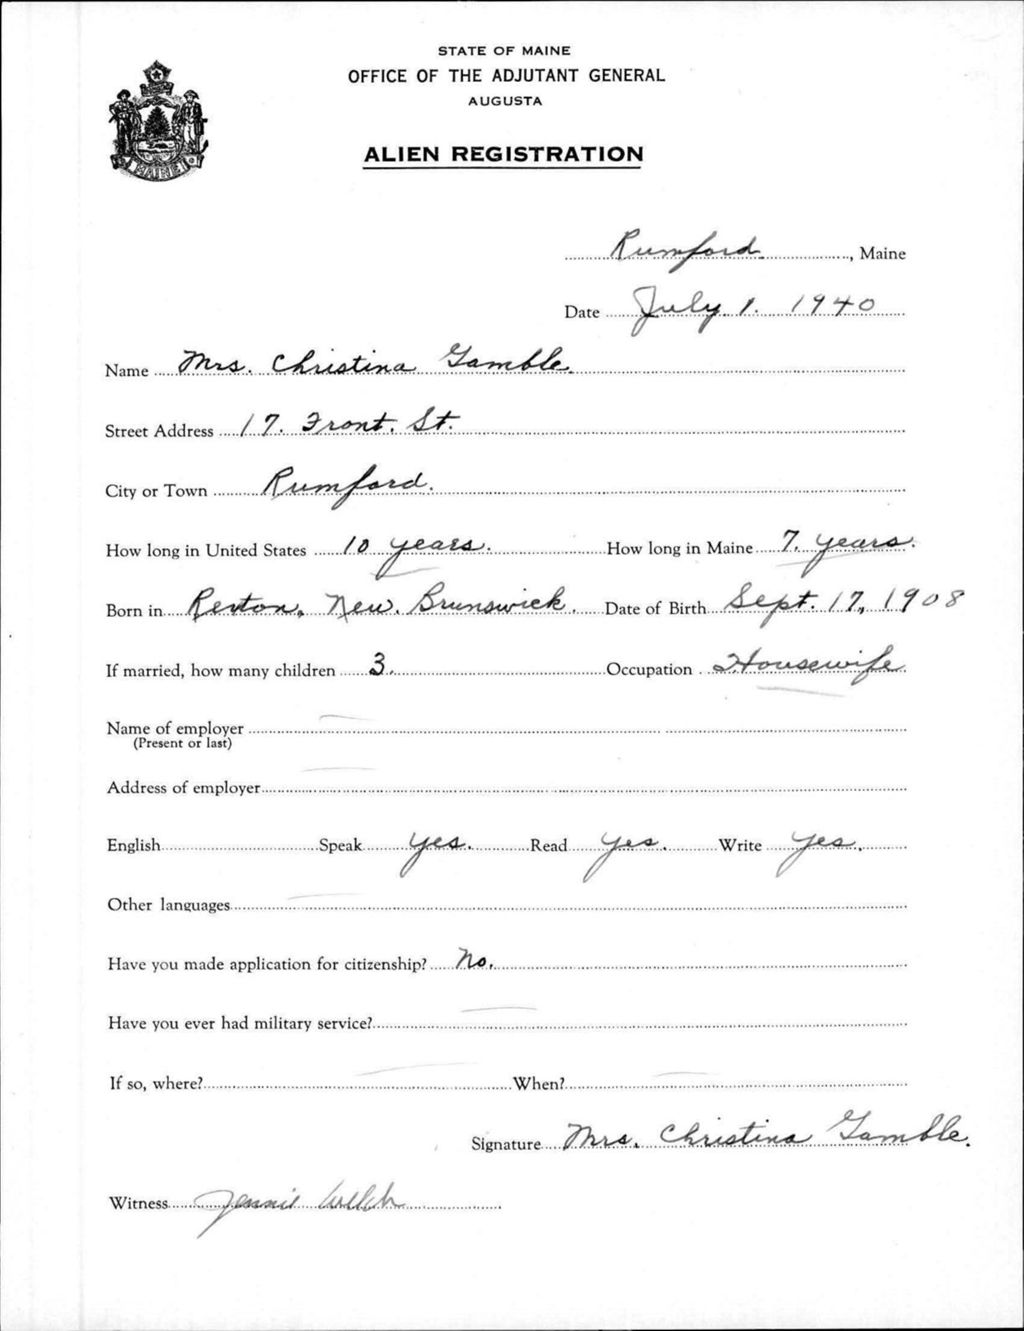 STATE OF MAINE
OFFICE OF THE ADJUTANT GENERAL
AUGUSTA
ALIEN REGISTRATION
MAINE
Rumford, Maine
Date July 1. 1940
Name Mrs. Christina Gamble.
Street Address 17. Front. St.
City or Town Rumford.
How long in United States 10 years. How long in Maine 7. years.
Born in Rexton, New. Brunswick. Date of Birth Sept. 17, 1908
If married, how many children 3. Occupation Housewife
Name of employer
(Present or last)
Address of employer
English Speak yes. Read yes. Write yes.
Other languages
Have you made application for citizenship? No.
Have you ever had military service?
If so, where? When?
Signature Mrs. Christina Gamble.
Witness Jennie Welch